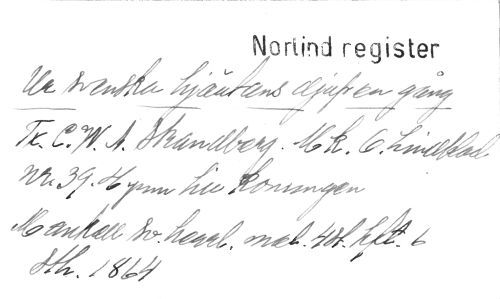 Norlind register
Ur svenska hjärtans djup en gång
Tx. C.W.A. Strandberg. Mk. O. Lindblad
Nr. 39. Hymn till Konungen
Mankell Sv. krest. mel. 4st. hft. 6
Sth. 1864